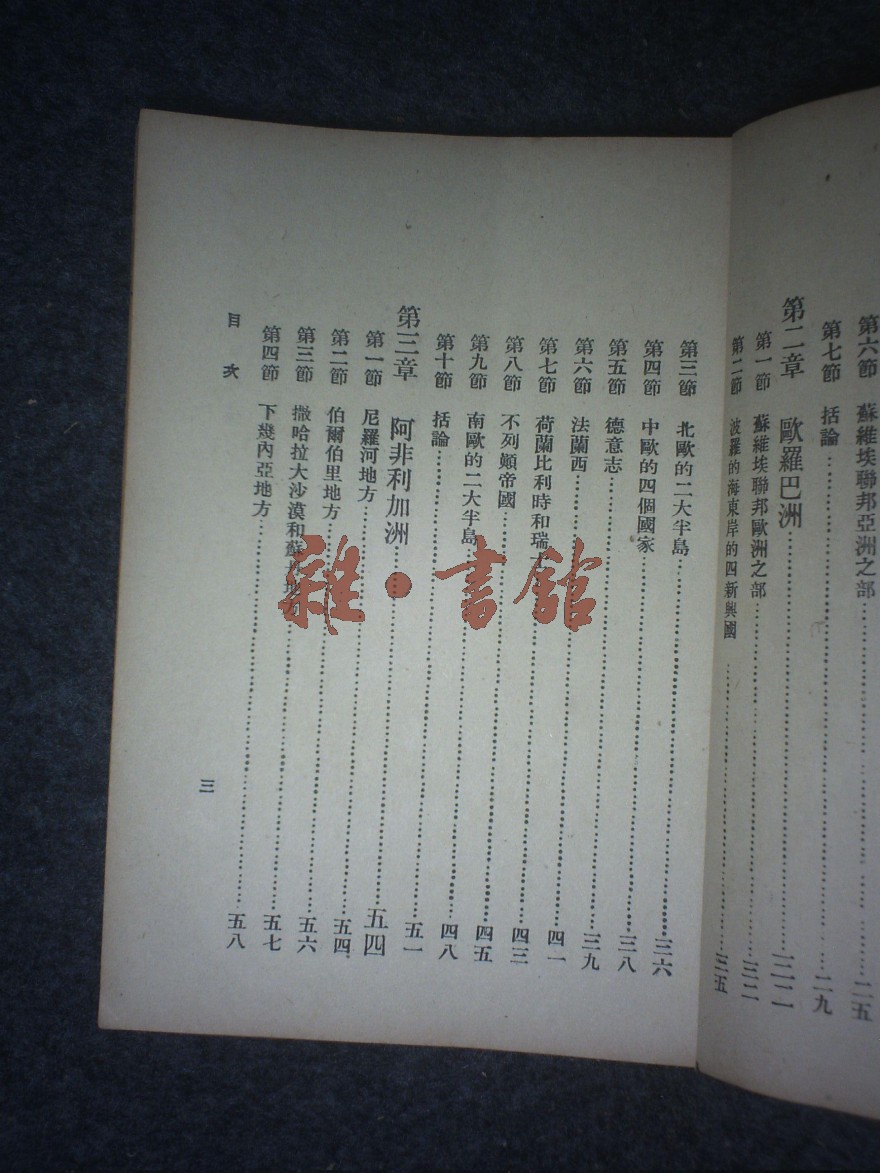 第六節 蘇維埃聯邦亞洲之部……二五
第七節 括論……二九
第二章 歐羅巴洲……三二
第一節 蘇維埃聯邦歐洲之部……三二
第二節 波羅的海東岸的四新興國……三五
第三節 北歐的二大半島……三六
第四節 中歐的四個國家……三八
第五節 德意志……三九
第六節 法蘭西……四一
第七節 荷蘭比利時和瑞士……四三
第八節 不列顛帝國……四五
第九節 南歐的二大半島……四八
第十節 括論……五一
第三章 阿非利加洲……五四
第一節 尼羅河地方……五四
第二節 伯爾伯里地方……五六
第三節 撒哈拉大沙漠和蘇丹地方……五七
第四節 下幾內亞地方……五八
目次 三
雜·書館